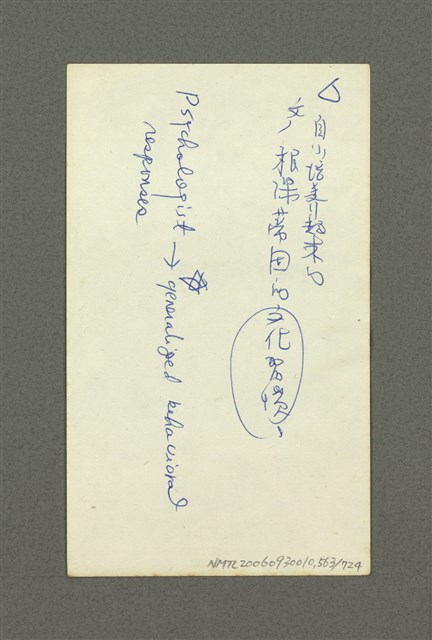 自小培養起來的
根深蒂固的文化習
Psychologist → generalized behavioral
responses
NMTL20060930010,563/724